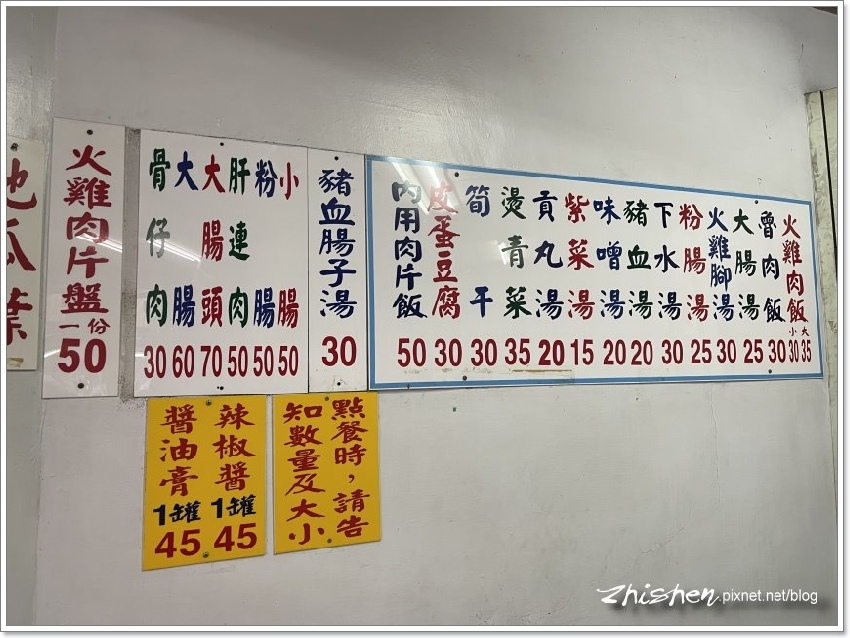 火雞肉飯 小30 大35
魯肉飯 30
大腸湯 25
火雞腳湯 30
粉腸湯 25
下水湯 30
豬血湯 20
味噌湯 20
紫菜湯 15
貢丸湯 20
燙青菜 35
筍干 30
皮蛋豆腐 30
內用肉片飯 50
豬血腸子湯 30
小腸 50
粉腸 50
肝連肉 50
大腸頭 70
大腸 60
骨仔肉 30
火雞肉片盤一份 50
地瓜葉
點餐時，請告
知數量及大小
辣椒醬 1罐 45
醬油膏 1罐 45
zhishen.pixnet.net/blog